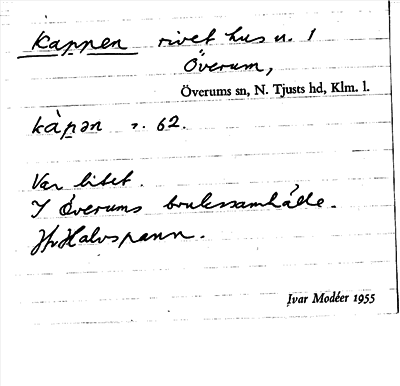 Kappen rivet hus n. 1
Överum,
Överums sn, N. Tjusts hd, Klm. l.
kàpən n. 62.
Var litet.
I Överums brukssamhälle.
Jfr Halvspann.
Ivar Modéer 1955